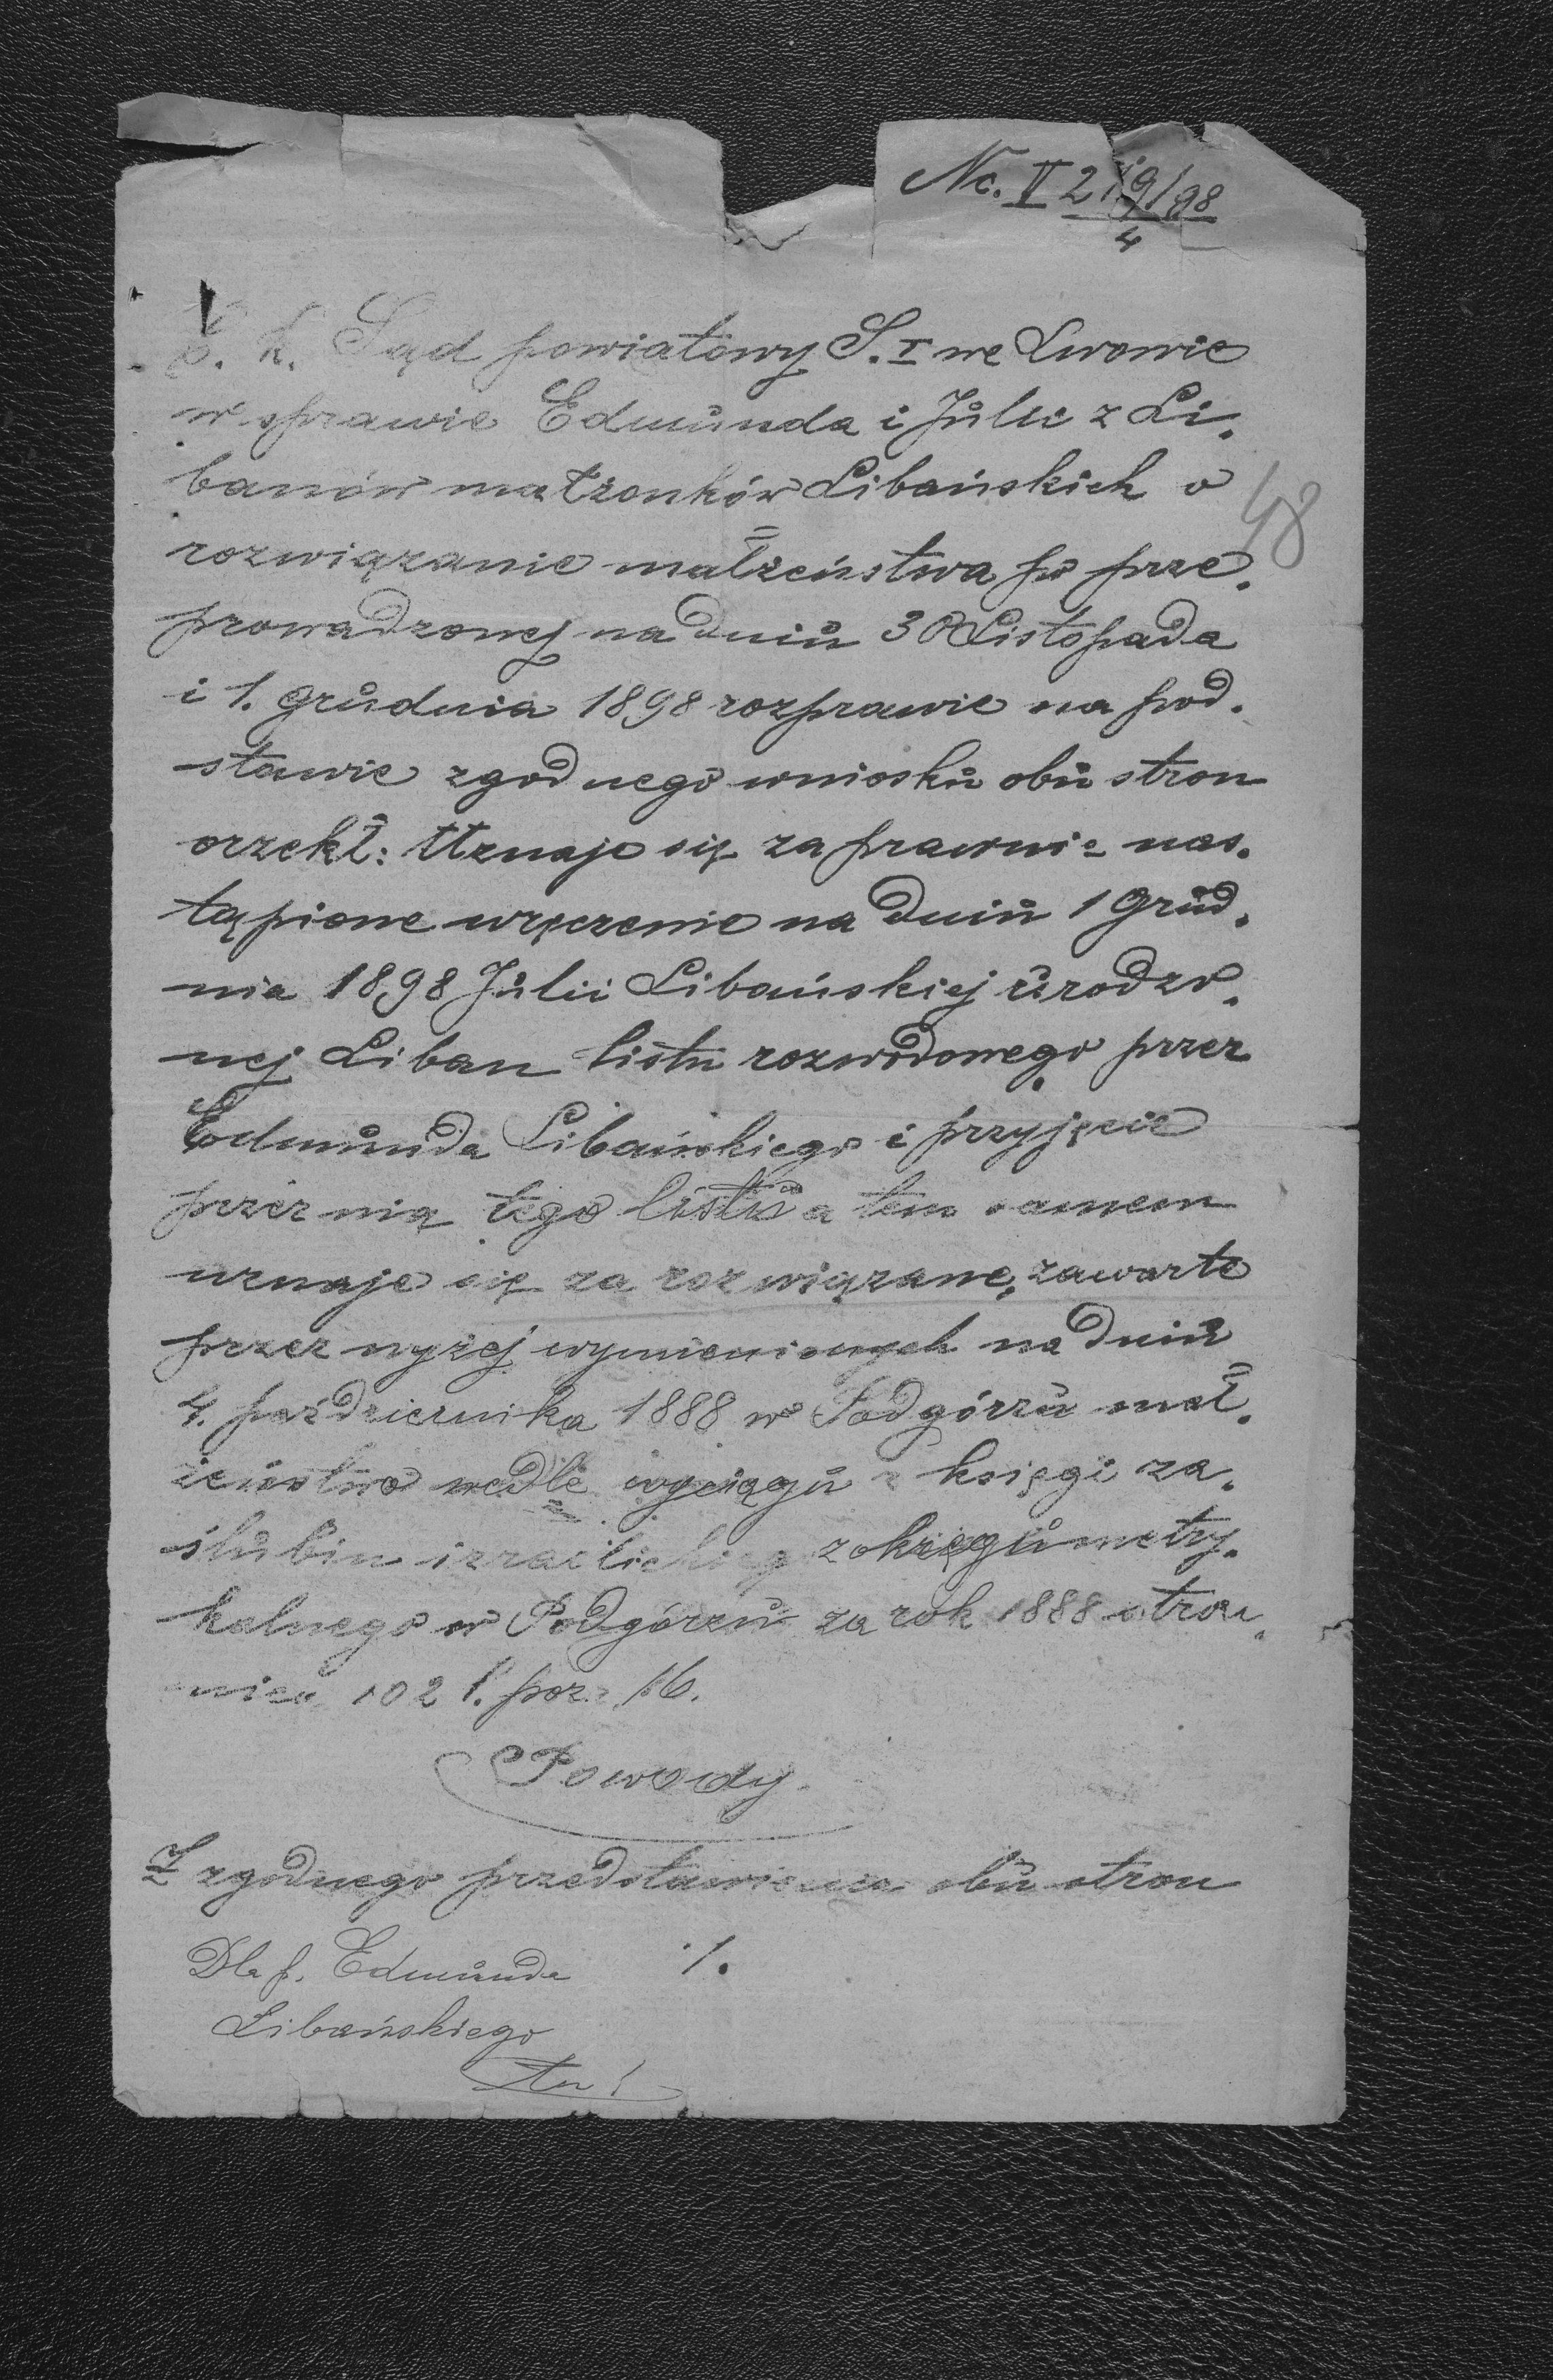 Nc. II 219/98
4
C. k. Sąd powiatowy S. I we Lwowie
w sprawie Edmunda i Julii z Li-
banów małżonków Libańskich o
48
rozwiązanie małżeństwa po prze-
prowadzonej na dniu 30 Listopada
i 1. Grudnia 1898 rozprawie na pod-
stawie zgodnego wniosku obu stron
orzekł: Uznaje się za prawnie nas-
tąpione wręczenie na dniu 1 Grud-
nia 1898 Julii Libańskiej urodzo-
nej Liban listu rozwodowego przez
Edmunda Libańskiego i przyjęcie
przez nią tego listu a tem samem
uznaje się za rozwiązane, zawarte
przez wyżej wymienionych na dniu
4. października 1888 w Podgórzu mał-
żeństwo wedle wyciągu z księgi za-
ślubin izraelickiej z okręgu metry-
kalnego w Podgórzu za rok 1888 stron-
nica 102 l. poz. 16.
Powody.
Z zgodnego przedstawienia obu stron
Dla p. Edmunda
Libańskiego
·/.